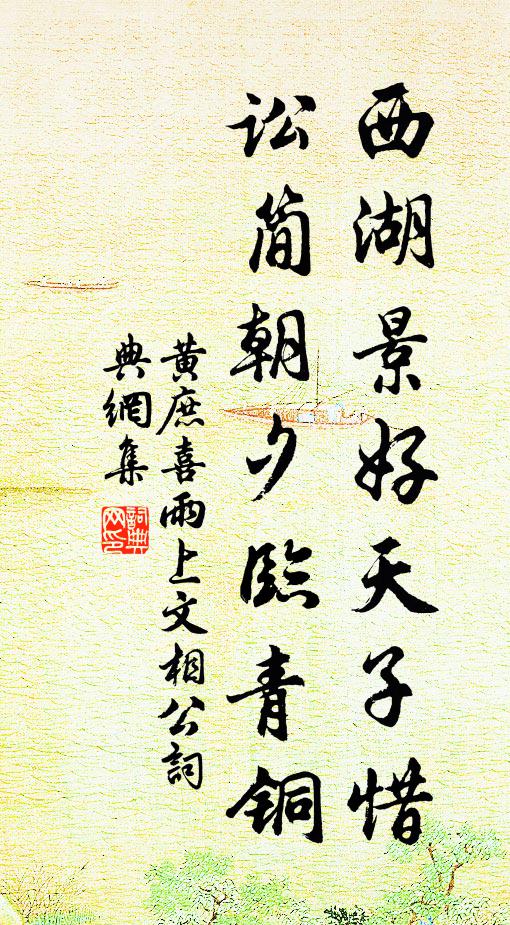 西湖景好天子惜
讼简朝夕临青铜
黄庶喜雨上文相公詞
典網集
詞典
网印